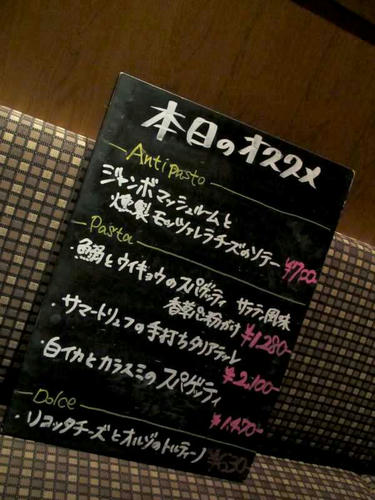 本日のオススメ
Antipasto
ジャンボマッシュルームと
燻製モッツァレラチーズのソテー ¥700
Pasta
・鰯とウイキョウのスパゲッティ サラミ風味
香草パン粉がけ ¥1,280-
・サマートリュフの手打ちタリアテッレ
¥2,100-
・白イカとカラスミのスパゲッティ
¥1,450-
Dolce
・リコッタチーズとオルゾのトルティーノ ¥630-